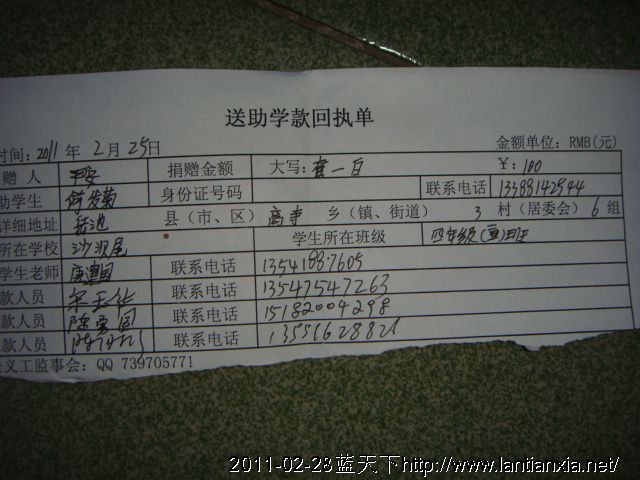 送助学款回执单
时间: 2011 年 2 月 25日 金额单位: RMB(元)
赠 人 平安 捐赠金额 大写: 壹一百 ¥: 100
助学生 何发菊 身份证号码 联系电话 13388142944
详细地址 岳池 县（市、区） 高寺 乡（镇、街道） 3 村（居委会） 6 组
所在学校 沙汉尾 学生所在班级 四年级
学生老师 联系电话 13541887605
款人员 宋玉华 联系电话 13547547263
款人员 陈勇国 联系电话 15182004298
款人员 联系电话 13551628821
义工监事会: QQ 739705771
2011-02-28蓝天下http://www.lantianxia.net/